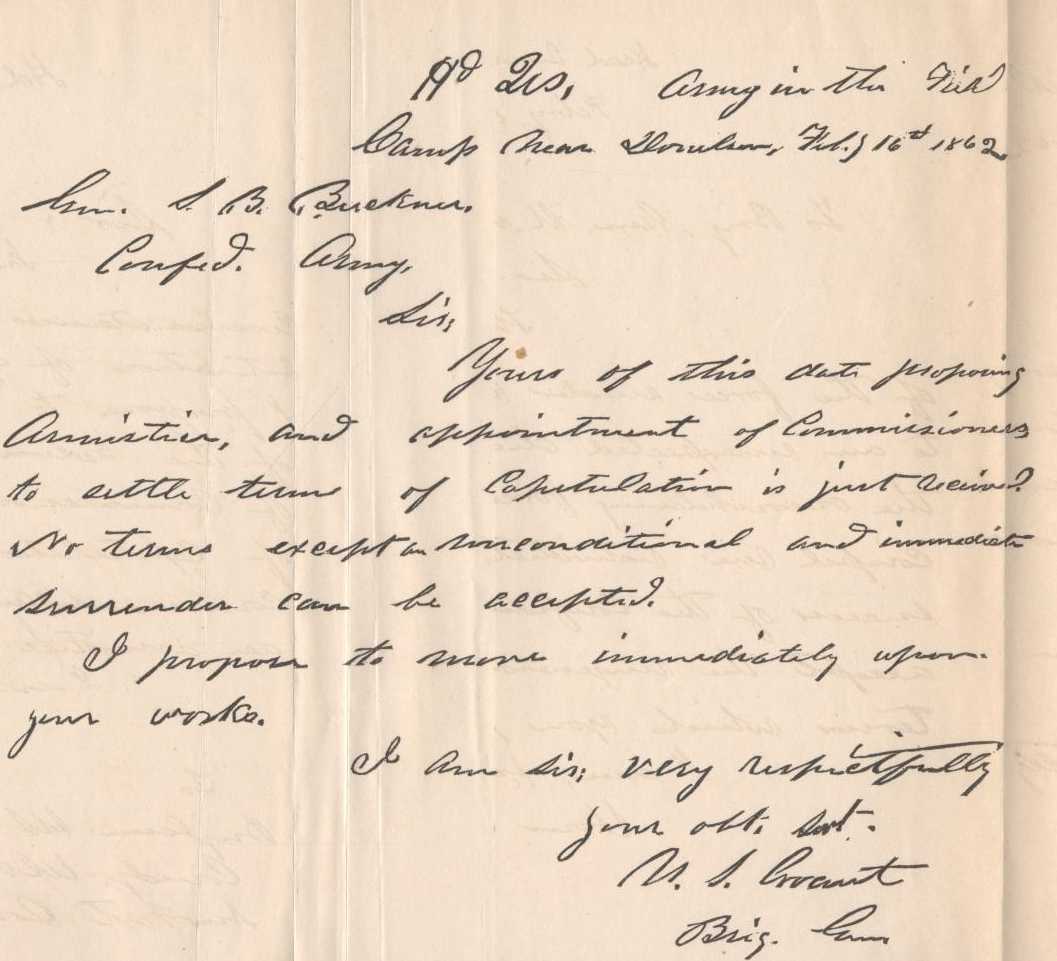 Hd Qrs, Army in the Field
Camp near Donelson, Feb.y 16th 1862.
Gen. S. B. Buckner,
Confed. Army,
Sir;
Yours of this date proposing
Armistice, and appointment of Commissioners
to settle terms of Capitulation is just received.
No terms except an unconditional and immediate
surrender can be accepted.
I propose to move immediately upon
your works.
I am sir; very respectfully
your obt. svt.
U. S. Grant
Brig. Gen.